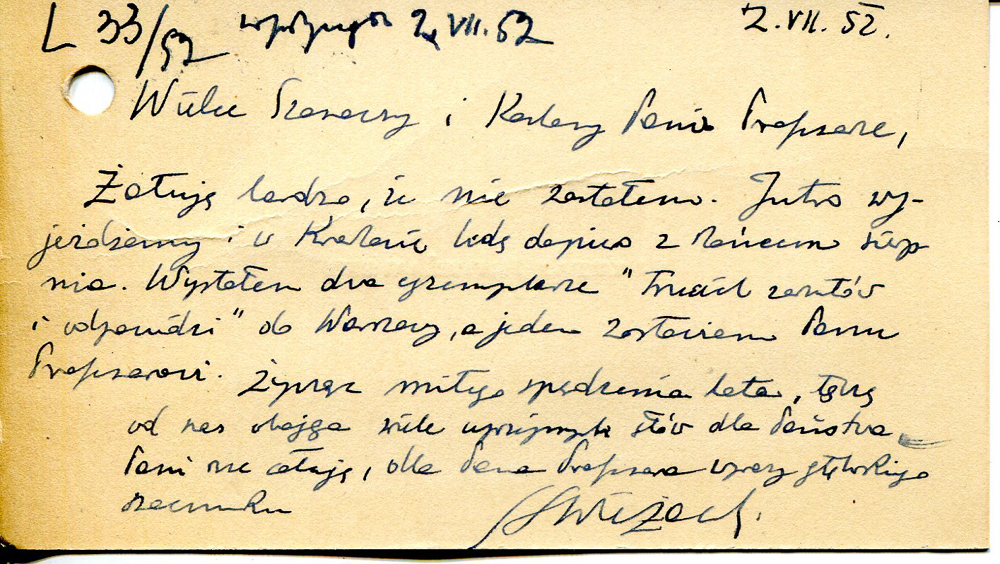 L 33/52 2.VII.52 2.VII.52.
Wielce Szanowny i Kochany Panie Profesorze,
Żałuję bardzo, że nie zastałem. Jutro wy-
jeżdżamy i w Krakowie będę dopiero z końcem sierp
nia. Wysłałem dwa egzemplarze "Trzech zarzutów
i odpowiedzi" do Warszawy, a jeden zostawiam Panu
Profesorowi. Życząc miłego spędzenia lata, łączę
od nas obojga wiele uprzejmych słów dla Państwa,
Pani rączki całuję, dla Pana Profesora wyrazy głębokiego
szacunku